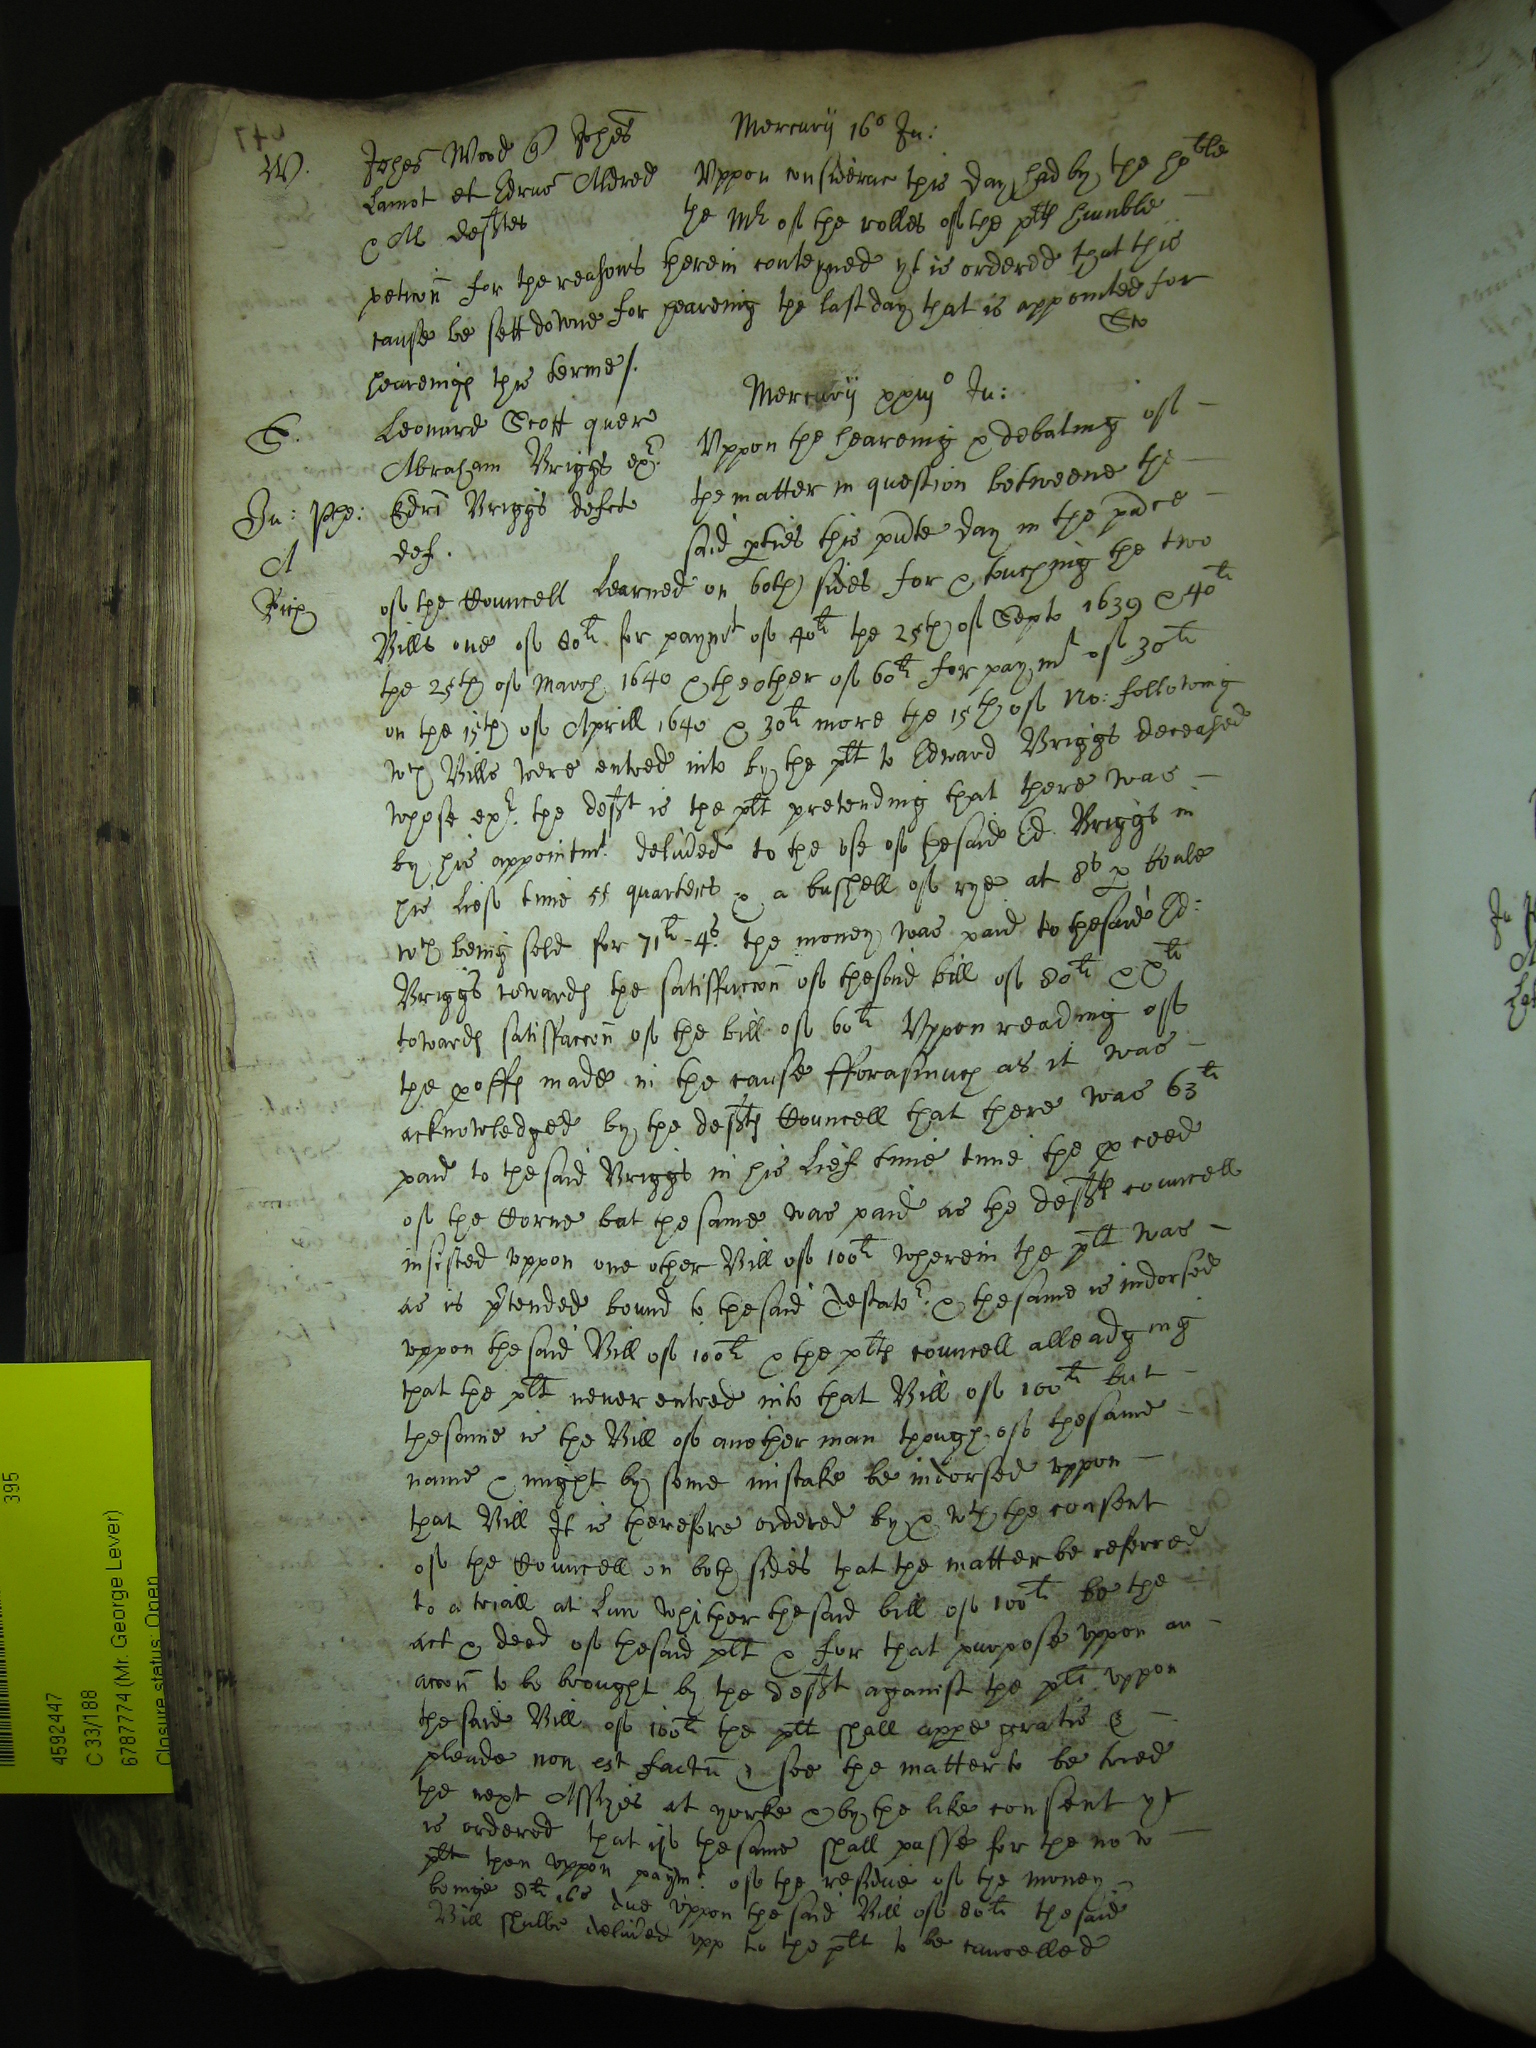 Mercurij 16º Ju:
W. Johes Wood q Johes
Lamot et Edrus Aldred
& Al defttes
Uppon considerac this day had by the hoble
the Mr of the rolles of the plts humble
peticon for the reasons therein conteyned yt is ordered that this
cause be sett downe for heareing the last day that is appointed for
heareings this terme /.
Mercurij xxiijº Ju:
S. Leonard Scott quer
Abraham Briggs exr
Edri Briggs defcte
def.
Uppon the heareing & debateing of
the matter in question betweene the
said pties this pnte day in the pnce
of the Councell Learned on both sides for & touching the two
Bills one of 80li for paymt of 40li the 25th of Septe 1639 & 40li
the 25th of March 1640 & the other of 60li for paymt of 30li
on the 15th of Aprill 1640 & 30li more the 15th of No: following
wch Bills were entred into by the plt to Edward Briggs deceased
whose exr the deft is the plt pretending that there was
by his appointmt delived to the use of the said Ed. Briggs in
his lief time 55 quarters & a bushell of rye at 8s p
wch being sold for 71li - 4s the money was paid to the said Ed:
Briggs towards the satisfaccon of the said bill of 80li & xli
towards satisfaccon of the bill of 60li Uppon reading of
the proffs made in the cause fforasmuch as it was
acknowledged by the defts Councell that there was 63li
paid to the said Briggs in his Lief time the pceed
of the Corne but the same was paid as the defts councell
insisted uppon one other Bill of 100li wherein the plt was
as is ptended bound to the said Testator & the same is indorsed
uppon the said Bill of 100li & the plts councell alleadging
that the plt never entred into that Bill of 100li but
the same is the Bill of another man though of the same
name & might by some mistake be indorsed uppon
that Bill It is therefore ordered by & wth the consent
of the Councell on both sides that the matter be referred
to a triall at Law whither the said bill of 100li be the
act & deed of the said plt & for that purpose uppon an
accon to be brought by the deft against the plt uppon
the said Bill of 100li the plt shall appe gratis &
pleade non est factu & soe the matter to be tried
the next Assizes at yorke & by the like consent yt
is ordered that if the same shall passe for the now
plt then uppon paymt of the residue of the money
beinge 8li 16s due uppon the said Bill of 80li the said
Bill shalbe delived upp to the plt to be cancelled
395
4592447
C 33/188
6787774 (Mr. George Lever)
Closure status: Open